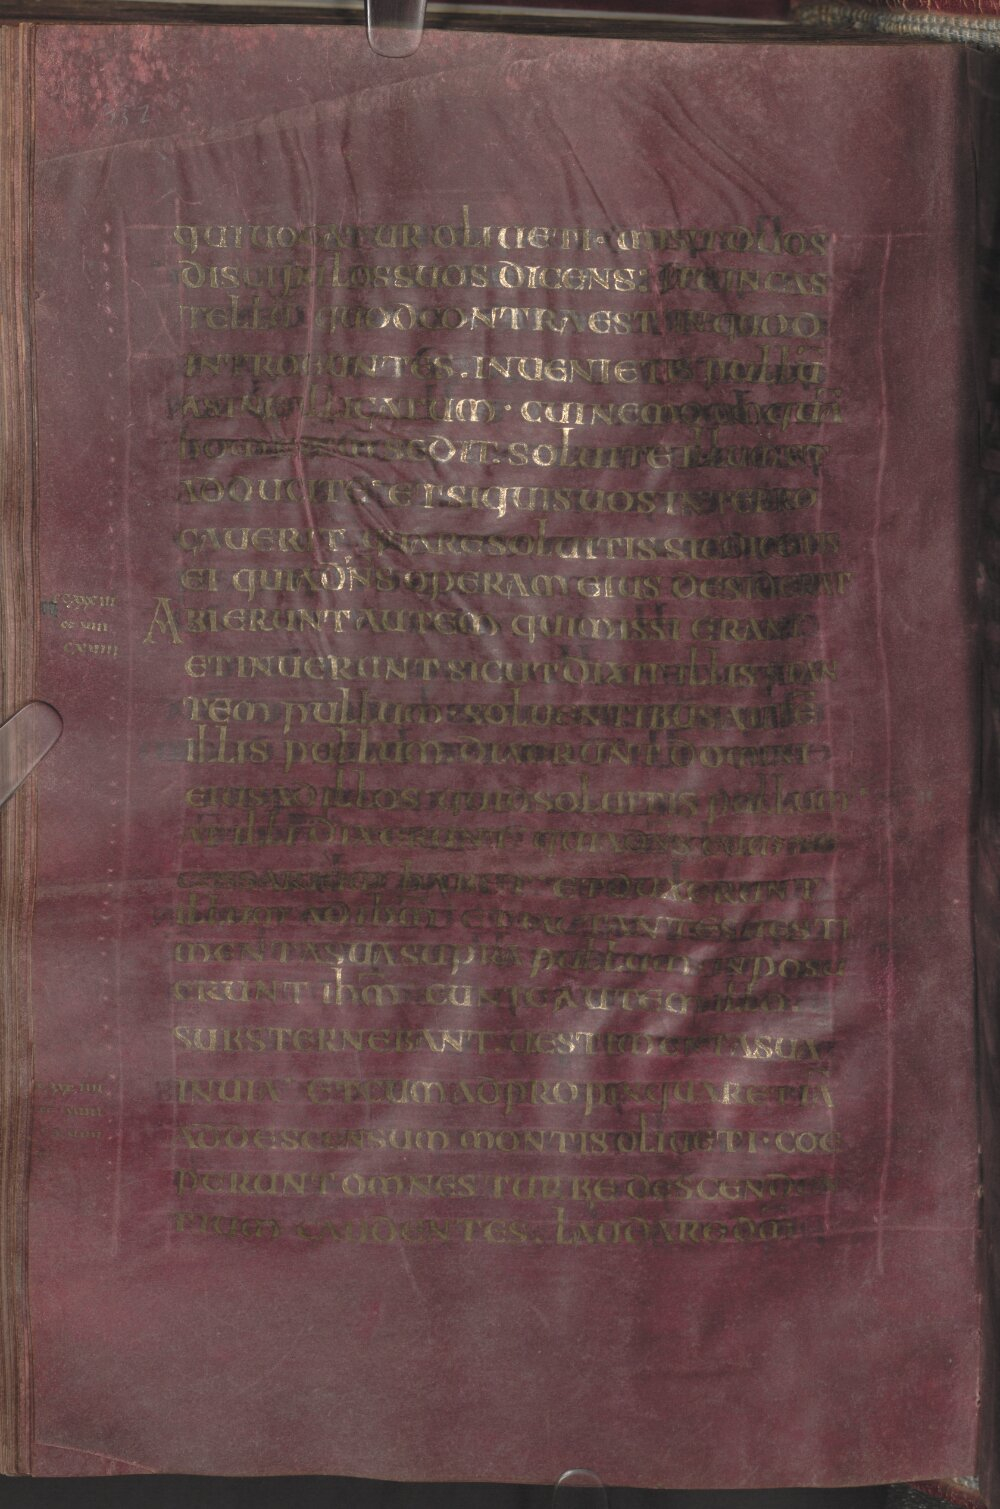 152
QUI UOCATUR OLIUETI· MISIT DUOS
DISCIPULOS SUOS DICENS: ITE IN CAS
TELLŪ QUOD CONTRA EST IN QUOD
INTROEUNTES· INUENIETIS PULLŪ
ASINAE LLIGATUM· CUI NEMO UMQUĀ
HOMINUM SEDIT· SOLUITE ILLUM ET
ADDUCITE· ET SI QUIS UOS INTERRO
GAUERIT QUARE SOLUITIS SIC DICETIS
EI QUIA DN̄S OPERAM EIUS DESIDERAT
CCXXXIII
ABIERUNT AUTEM QUI MISSI ERANT
ET INUERUNT SICUT DIXIT ILLIS STAN
TEM PULLUM· SOLUENTIBUS AUTĒ
ILLIS PULLUM· DIXERUNT DOMINI
EIUS AD ILLOS QUID SOLUITIS PULLUM
AT ILLI DIXERUNT QUIA DN̄S EUM
NECESSARIUM HABET ET DUXERUNT
ILLUM AD IHM̄ ET IACTANTES UESTI
MENTA SUA SUPRA PULLUM INPOSU
ERUNT IHM̄· EUNTE AUTEM ILLO
SUBSTERNEBANT· UESTIMENTA SUA
IN UIA ET CUM ADPROPINQUARET IĀ
AD DESCENSUM MONTIS OLIUETI· COE
PERUNT OMNES TURBE DESCENDEN
TIUM GAUDENTES· LAUDARE DM̄